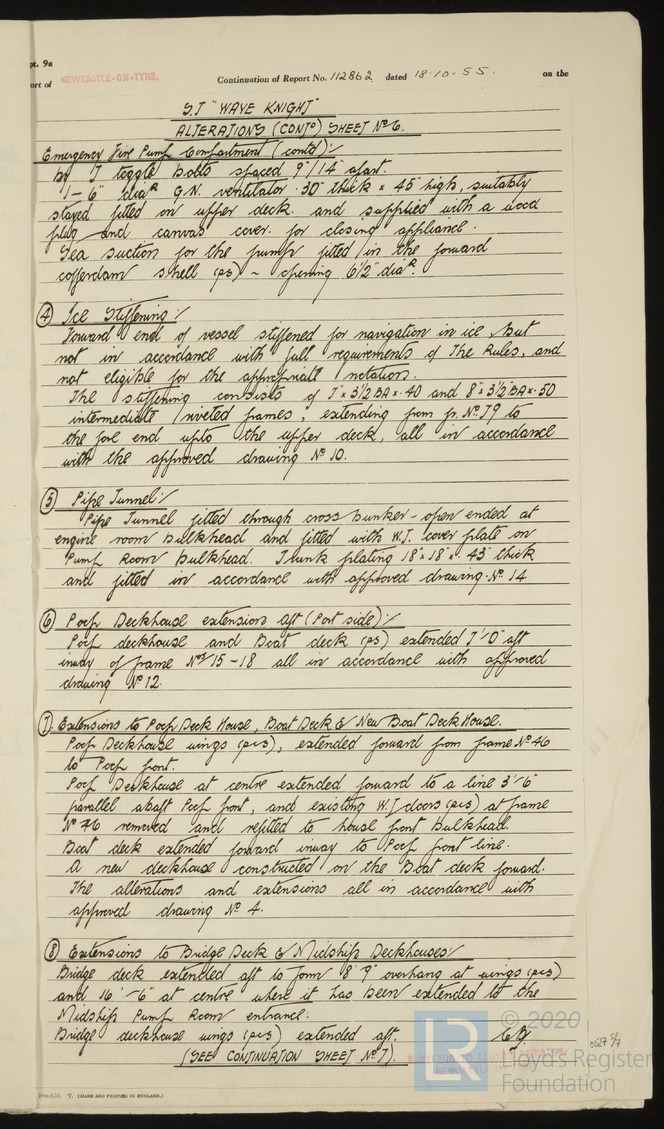 pt. 9a
ort of NEWCASTLE-ON-TYNE. Continuation of Report No. 112862 dated 18-10-55. on the
S.T "WAVE KNIGHT"
ALTERATIONS (CONTD) SHEET No 6.
Emergency Fire Pump Compartment (contd):-
by T toggle bolts spaced 9"/14" apart.
1-6" diaR G.N. ventilator .30" thick x 45" high, suitably
stayed fitted on upper deck and supplied with a wood
plug and canvas cover for closing appliance.
Sea suction for the pump fitted in the forward
cofferdam shell (ps) - opening 6 1/2" diaR.
4 Ice Stiffening:-
Forward end of vessel stiffened for navigation in ice, but
not in accordance with full requirements of The Rules, and
not eligible for the appropriate notations.
The stiffening consists of 7" x 3 1/2" BA x .40 and 8" x 3 1/2" BA x .50
intermediate riveted frames, extending from fr. No 79 to
the fore end upto the upper deck, all in accordance
with the approved drawing No 10.
5 Pipe Tunnel:-
Pipe Tunnel fitted through cross bunker - open ended at
engine room bulkhead and fitted with W.T. cover plate on
Pump Room Bulkhead. Trunk plating 18" x 18" x .43" thick
and fitted in accordance with approved drawing No 14
6 Poop Deckhouse extension aft (Port side):-
Poop deckhouse and Boat deck (ps) extended 7'-0" aft
inway of frame Nos 15-18 all in accordance with approved
drawing No 12.
7. Extensions to Poop Deck House, Boat Deck & New Boat Deck House.
Poop Deckhouse wings (p&s), extended forward from frame No 46
to Poop front.
Poop Deckhouse at centre extended forward to a line 3'-6"
parallel abaft Poop front, and existing W.T doors (p&s) at frame
No 46 removed and refitted to house front Bulkhead.
Boat deck extended forward inway to Poop front line.
A new deckhouse constructed on the Boat deck forward.
The alterations and extensions all in accordance with
approved drawing No 4.
8 Extensions to Bridge Deck & Midship Deckhouses:-
Bridge deck extended aft to form 8'9" overhang at wings (p&s)
and 16'-6" at centre where it has been extended to the
Midship Pump Room entrance.
Bridge deckhouse wings (p&s) extended aft.
(SEE CONTINUATION SHEET No 7).
SURVEYOR TO LLOYD'S REGISTER
NEWCASTLE
T. (MADE AND PRINTED IN ENGLAND.)
LR
© 2020
Lloyd's Register
Foundation